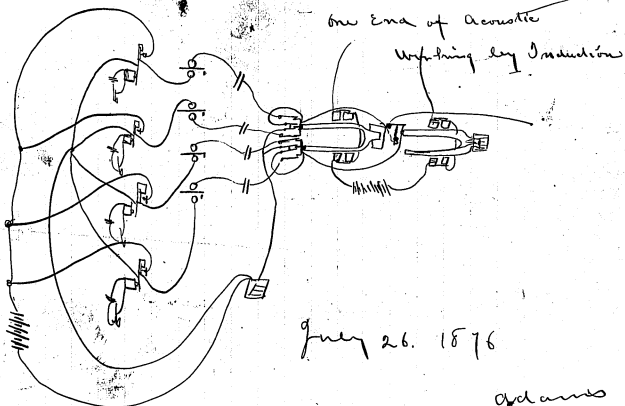 one End of Acoustic
Working by Induction
July 26. 1876
Adams